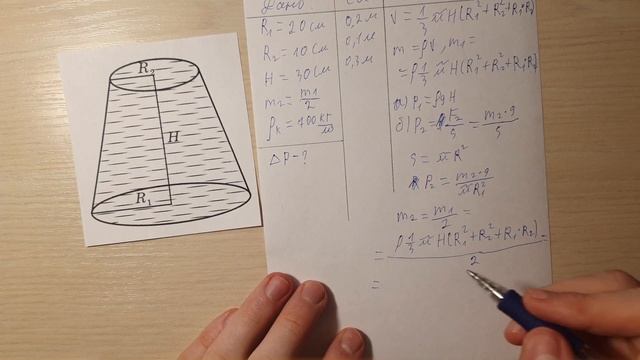 R₂
H
R₁
Дано
R₁ = 20 см 0,2 м
R₂ = 10 см 0,1 м
H = 30 см 0,3 м
m₂ = m₁/2
ρк = 700 кг/м
ΔP - ?
V = 1/3 π H(R₁² + R₂² + R₁·R₂)
m = ρV, m₁ =
= ρ 1/3 π H(R₁² + R₂² + R₁·R₂)
а) P₁ = ρgH
б) P₂ = F₂/S = m₂·g/S
S = π R²
P₂ = m₂·g/πR₁²
m₂ = m₁/2 =
= ρ 1/3 π H(R₁² + R₂² + R₁·R₂)/2 =
=